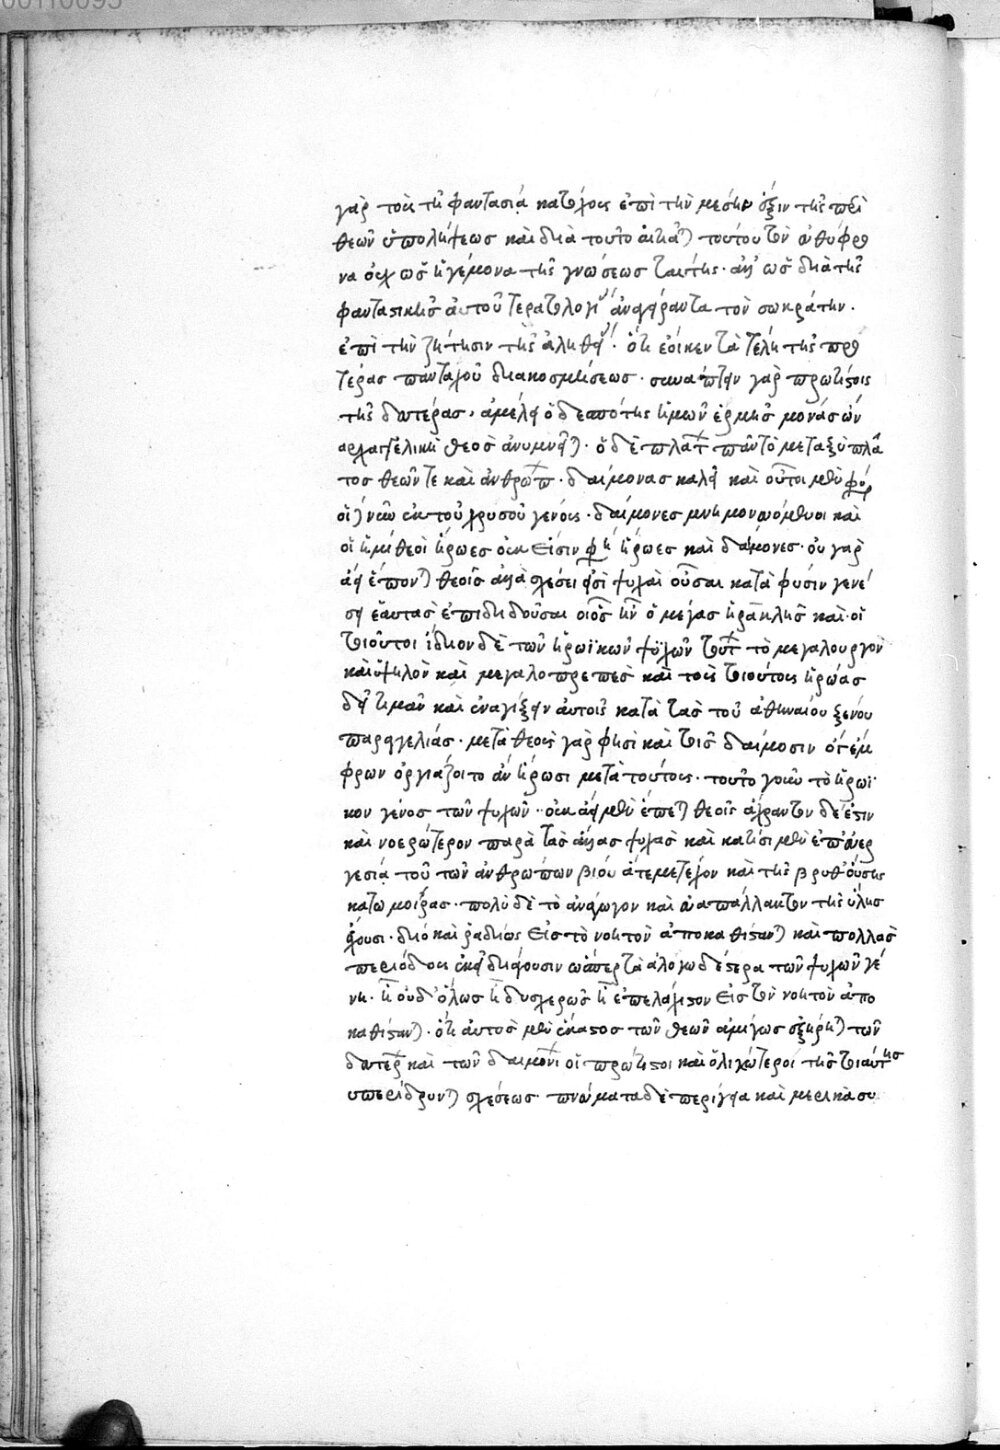 γὰρ τοῖς τῇ φαντασίᾳ κατόχοις ἐπὶ τὴν μέσην ἕξιν τῆς περὶ
θεῶν ὑπολήψεως καὶ διὰ τοῦτο αἰτιᾶται τούτου τὸν εὐθύφρο
να οὐχ ὡς ἡγεμόνα τῆς γνώσεως ταύτης· ἀλλ' ὡς διὰ τῆς
φανταστικῆς αὐτοῦ τερατολογίας ἀνεγείραντα τὸν σωκράτην.
ἐπὶ τὴν ζήτησιν τῆς ἀληθείας· ὅτι ἔοικεν τὰ τέλη τῆς προ
τέρας πανταχοῦ διακοσμήσεως· συνάπτειν γὰρ πρωτίστοις
τῆς δευτέρας, ἀμέλει ὁ δεσπότης ἡμῶν ἑρμῆς μονὰς ὢν
ἀρχαγγελικὴ θεὸς ἀνυμνεῖται· ὁ δὲ πλάτων πᾶν τὸ μεταξὺ πλά
τος θεῶν τε καὶ ἀνθρώπων· δαίμονας καλεῖ καὶ οὗτοι μὲν φύσει
οἱ νῦν ἐκ τοῦ χρυσοῦ γένους· δαίμονες μνημονευόμενοι καὶ
οἱ ἡμίθεοι ἥρωες οὐκ εἰσὶν φύσει ἥρωες καὶ δαίμονες· οὐ γὰρ
ἀεὶ ἕπονται θεοῖς ἀλλὰ σχέσει εἰσὶ ψυχαὶ οὖσαι κατὰ φύσιν γενέ
σει ἑαυτὰς ἐπιδιδοῦσαι οἷος ἦν ὁ μέγας ἡρακλῆς καὶ οἱ
τοιοῦτοι ἴδιον δὲ τῶν ἡρωϊκῶν ψυχῶν τοῦτο τὸ μεγαλουργὸν
καὶ ὑψηλὸν καὶ μεγαλοπρεπὲς καὶ τοῖς τοιούτοις ἥρωας
δεῖ τιμᾶν καὶ ἐναγίζειν αὐτοῖς κατὰ τὰς τοῦ ἀθηναίου ξένου
παραγγελίας· μετὰ θεοὺς γὰρ φησὶ καὶ τοῖς δαίμοσιν ὅγ' ἔμ
φρων ὀργιάζοιτο ἂν ἥρωσι μετὰ τούτους· τοῦτο γοῦν τὸ ἡρωϊ
κὸν γένος τῶν ψυχῶν· οὐκ ἀεὶ μὲν ἕπεται θεοῖς ἄχραντον δέ ἐστιν
καὶ νοερώτερον παρὰ τὰς ἄλλας ψυχὰς καὶ κάτεισι μὲν ἐπ' εὐερ
γεσίᾳ τοῦ τῶν ἀνθρώπων βίου ἅτε μετέχον καὶ τῆς βριθούσης
κάτω μοίρας· πολὺ δὲ τὸ ἀνάγωγον καὶ εὐαπάλλακτον τῆς ὕλης
ἔχουσι· διὸ καὶ ῥᾳδίως εἰς τὸ νοητὸν ἀποκαθίστανται καὶ πολλὰς
περιόδους ἐκεῖ διάγουσιν ὥσπερ τὰ ἀλογωδέστερα τῶν ψυχῶν γέ
νη· ἢ οὐδ' ὅλως ἢ δυσχερῶς ἢ ἐπ' ἐλάχιστον εἰς τὸν νοητὸν ἀπο
καθίσταται· ὅτι αὐτὸς μὲν ἕκαστος τῶν θεῶν ἀμιγῶς ἐξῄρηται τῶν
δευτέρων καὶ τῶν δαιμόνων οἱ πρώτιστοι καὶ ὁλικώτεροι τῆς τοιαύτης
ὑπερίδρυνται σχέσεως· πνεύματα δὲ περίγεια καὶ μερικὰ συ